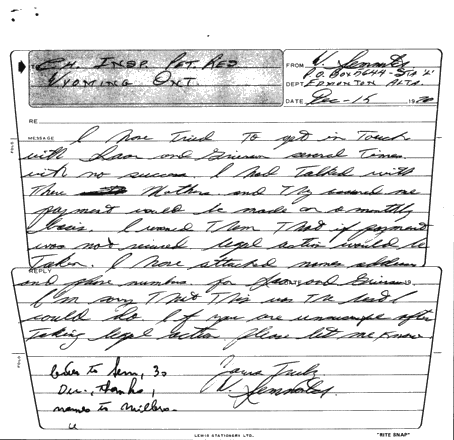 CH. INSP. PET. RES
WYOMING ONT.
FROM
P.O. BOX 7644 - STA 'L'
DEPT EDMONTON ALTA.
DATE Dec - 15 19
RE
MESSAGE
I have tried to get in touch
with and several times
with no success. I had talked with
there mothers and they assured me
payment would be made on a monthly
basis. I warned them that if payment
was not received legal action would be
taken. I have attached names address
REPLY
and phone numbers for and
I'm sorry that this was the best I
could do. If you are unsuccessful after
taking legal action please let me know.
Yours Truly
30
Dec., thanks,
names to
LEWIS STATIONERY LTD.
"RITE SNAP"
FOLD
FOLD